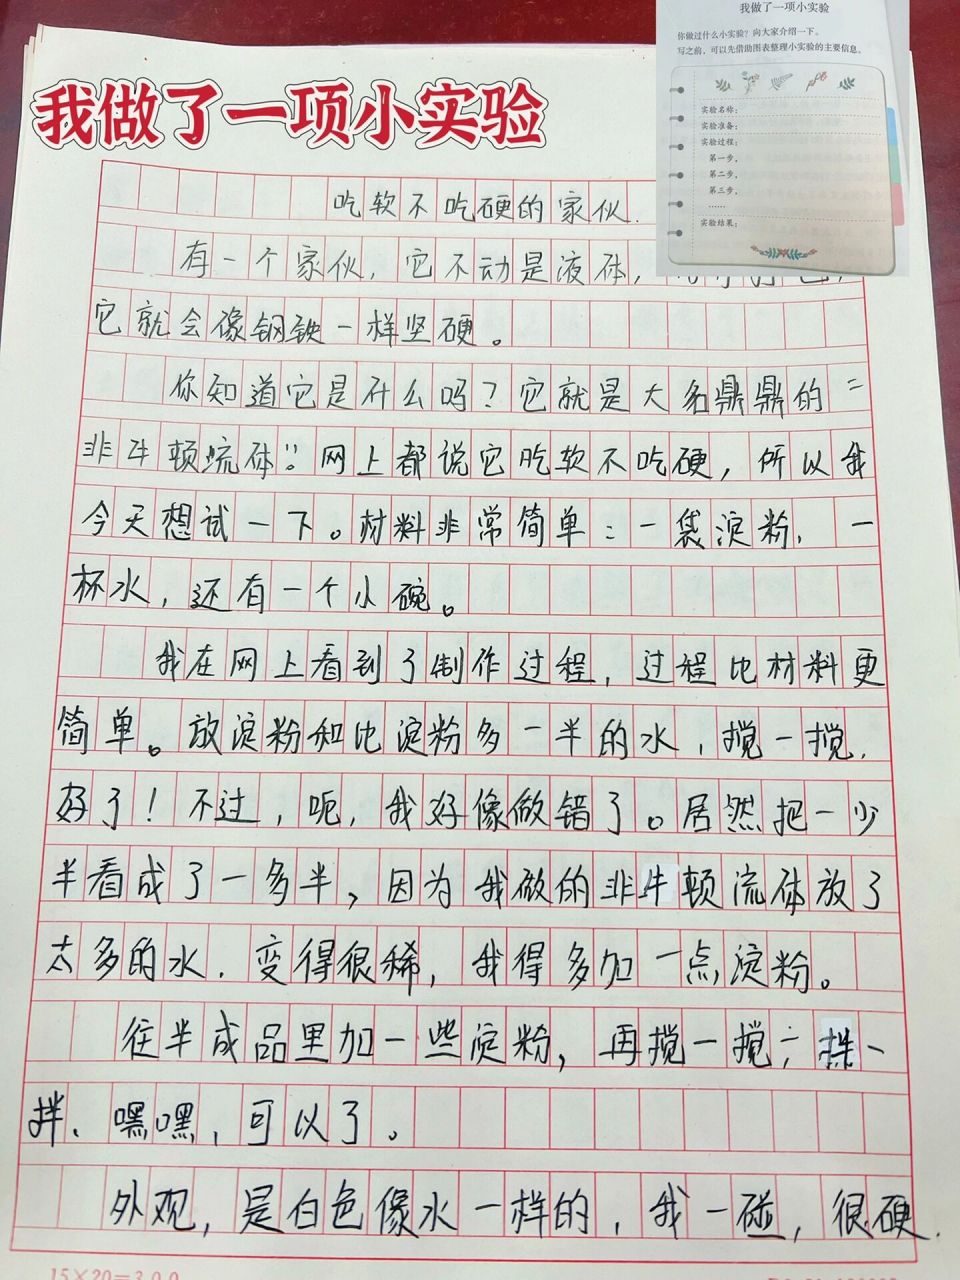 我做了一项小实验
我做了一项小实验
你做过什么小实验？向大家介绍一下。
写之前，可以先借助图表整理小实验的主要信息。
实验名称：
实验准备：
实验过程：
第一步，
第二步，
第三步，
……
实验结果：
吃软不吃硬的家伙
有一个家伙，它不动是液体，
它就会像钢铁一样坚硬。
你知道它是什么吗？它就是大名鼎鼎的“
非牛顿流体”。网上都说它吃软不吃硬，所以我
今天想试一下。材料非常简单：一袋淀粉、一
杯水，还有一个小碗。
我在网上看到了制作过程，过程比材料更
简单。放淀粉和比淀粉多一半的水，搅一搅，
好了！不过，呃，我好像做错了。居然把一少
半看成了一多半，因为我做的非牛顿流体放了
太多的水，变得很稀，我得多加一点淀粉。
往半成品里加一些淀粉，再搅一搅，拌一
拌，嘿嘿，可以了。
外观，是白色像水一样的，我一碰，很硬，
15×20=300